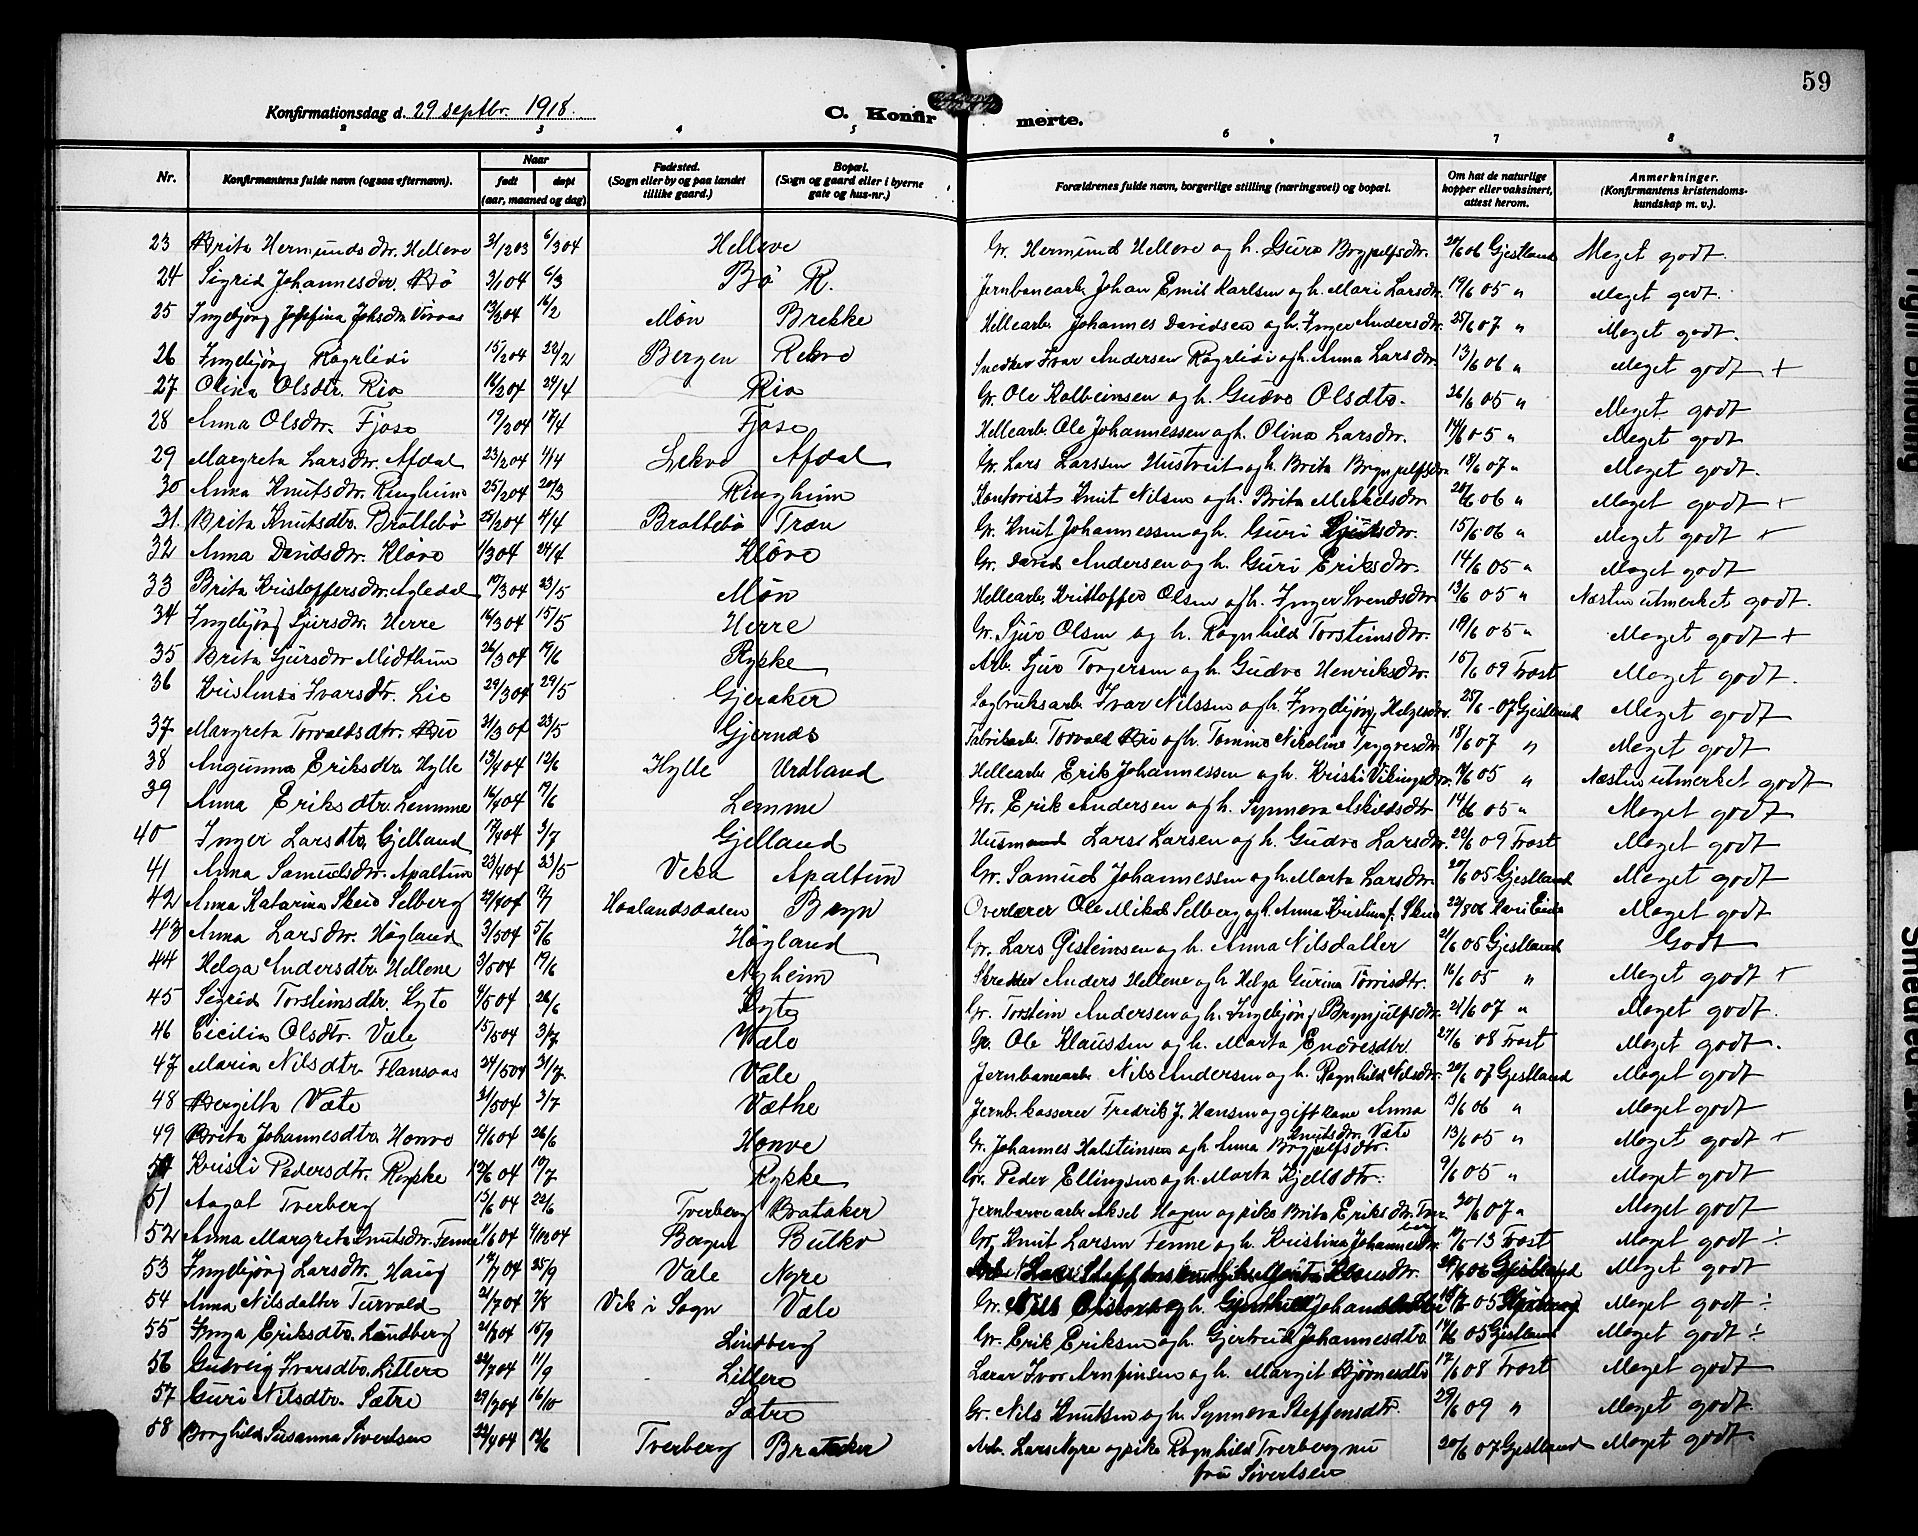 59
Konfirmationsdag d. 29 septbr. 1918.
C. Konfirmerte.
2 3 4 5 6 7 8
Nr.
Konfirmantens fulde navn (ogsaa efternavn).
Naar
født
døpt
(aar, maaned og dag)
Fødested.
(Sogn eller by og paa landet
tillike gaard.)
Bopæl.
(Sogn og gaard eller i byerne
gate og hus-nr.)
Forældrenes fulde navn, borgerlige stilling (næringsvei) og bopæl.
Om hat de naturlige
kopper eller vaksinert,
attest herom.
Anmerkninger.
(Konfirmantens kristendoms-
kundskap m. v.).
23 Brita Hermundsdtr. Helleve 31/12 03 6/3 04 Helleve Gr. Hermund Helleve og h. Guro Brynjulfsdtr. 20/6 06 Gjestland Meget godt.
24 Sigrid Johannesdtr. Bø 3/1 04 6/3 Bø R. Jernbanearb. Johan Emil Karlsen og h. Mari Larsdtr. 19/6 05 " Meget godt.
25 Ingebjørg Josefina Johsdtr. 13/2 04 16/2 Møn Brekke Hellearb. Johannes Davidsen og h. Inger Andersdtr. 25/6 07 " Meget godt.
26 Ingebjørg Røgrlidi 15/2 04 22/2 Bergen Rekve Snedker Ivar Andersen Røgrlidi og h. Anna Larsdtr. 13/6 06 " Meget godt +
27 Olina Olsdtr. Rio 16/2 04 24/4 Rio Gr. Ole Kolbeinsen og h. Gudve Olsdtr. 26/6 05 " Meget godt
28 Anna Olsdtr. Fjose 19/2 04 17/4 Fjose Hellearb. Ole Johannessen og h. Olina Larsdtr. 17/6 05 " Meget godt
29 Margreta Larsdtr. Afdal 23/2 04 4/4 Lekve Afdal Gr. Lars Larssen Hustveit og h. Brita Brynjulfsdtr. 18/6 07 " Meget godt.
30 Anna Knutsdtr. Ringheim 25/2 04 20/3 Ringheim Kontorist Knut Nilsen og h. Brita Mikkelsdtr. 20/6 06 " Meget godt +
31. Brita Knutsdtr. Brattebø 25/2 04 4/4 Brattebø Træn Gr. Knut Johannessen og h. Guri 15/6 06 " Meget godt +
32 Anna Davidsdtr. Kløve 1/3 04 24/4 Kløve Gr. David Andersen og h. Guri Eriksdtr. 14/6 05 " Meget godt
33 Brita Kristoffersdtr. Ayledal 19/3 04 23/5 Møn Hellearb. Kristoffer Olsen og h. Inger Svendsdtr. 13/6 05 " Næsten utmerket godt.
34 Ingebjørg Sjursdtr. Herre 16/3 04 15/5 Herre Gr. Sjur Olsen og h. Ragnhild Torsteinsdtr. 19/6 05 " Meget godt +
35 Brita Sjursdtr. Midthun 26/3 04 19/6 Rykke Arb. Sjur Torgersen og h. Gudve Henriksdtr. 15/6 09 Frost Meget godt.
36 Kristense Ivarsdtr. Lie 29/3 04 29/5 Gjeraker Sagbruksarb. Ivar Nilssen og h. Ingebjørg Helgesdtr. 25/6-07 Gjestland Meget godt
37 Margreta Torvaldsdtr. Bø 31/3 04 23/5 Gjernes Fabrikarb. Torvald Bø og h. Tomine Nicoline Trygvesdtr. 18/6 07 " Meget godt
38 Angunna Eriksdtr. Hylle 13/4 04 12/6 Hylle Urdland Hellearb. Erik Johannessen og h. Kristi Vikingsdtr. /6 05 " Næsten utmerket godt
39 Anna Eriksdtr. Lemme 16/4 04 19/6 Lemme Gr. Erik Andersen og h. Synneva Askildsdtr. 14/6 05 " Meget godt
40 Inger Larsdtr. Gjelland 17/4 04 3/7 Gjelland Husmand Lars Larsen og h. Gudve Larsdtr. 22/6 09 Frost Meget godt
41 Anna Samuelsdtr. Apaltun 23/4 04 23/5 Veka Apaltun Gr. Samuel Johannessen og h. Marta Larsdtr. 20/6 05 Gjestland Meget godt
42 Anna Katarina Skeie Selberg 22/4 04 17/7 Haalandsdalen Bryn Overlærer Ole Mikal Selberg og h. Anna Kristina f. Skeie 22/8 06 Meget godt
43 Anna Larsdtr. Høgland 3/5 04 5/6 Høgland Gr. Lars Gisteinsen og h. Anna Nilsdatter 21/6 05 Gjestland Godt
44 Helga Andersdtr. Hellene 3/5 04 19/6 Nyheim Skredder Anders Hellene og h. Helga Gurina Torrisdtr. 16/6 05 " Meget godt +
45 Sigrid Torsteinsdtr. Kyte 4/5 04 26/6 Kyte Gr. Torstein Andersen og h. Ingebjørg Brynjulfsdtr. 21/6 07 " Meget godt.
46 Cecilia Olsdtr. Væle 15/5 04 3/7 Væle Gr. Ole Klaussen og h. Marta Endresdtr. 27/6 08 Frost Meget godt.
47 Maria Nilsdtr. Flansaas 24/5 04 31/7 Væle Jernbanearb. Nils Andersen og h. Ragnhild Nilsdtr. 20/6 07 Gjestland Meget godt
48 Bergitta Væte 31/5 04 3/7 Væthe Jernb. kasserer Fredrik J. Hansen og gift kone Anna 13/6 06 " Meget godt
Knutsdtr. Væte
49 Brita Johannesdtr. Honve 4/6 04 26/6 Honve Gr. Johannes Halsteinsen og h. Anna Brynjulfsdtr. 13/6 05 " Meget godt +
50 Kristi Pedersdtr. Rykke 12/6 04 10/7 Rykke Gr. Peder Ellingsen og h. Marta Kjellsdtr. 9/6 05 " Meget godt
51 Aagot Tverberg 15/6 04 22/6 Tverberg Brataker Jernbanearb. Aksel Hagen og pike Brita Eriksdtr. Tver- 20/6 07 " Meget godt
berg
52 Anna Margreta Knutsdtr. Fenne 11/6 04 4/12 04 Bergen Butko Gr. Knut Larsen Fenne og h. Kristina Johannesdtr. 19/6-13 Frost Meget godt ÷
53 Ingebjørg Larsdtr. Haug 12/7 04 25/9 Væle Nyre 6 06 Gjestland Meget godt
54 Anna Nilsdatter Turvold 21/7 04 7/8 Vik i Sogn Væle Gr. Nils 05 Meget godt ÷
55 Inga Eriksdtr. Lindberg 21/7 04 18/9 Lindberg Gr. Erik Eriksen og h. Gjertrud Johannesdtr. 14/6 05 Gjestland Meget godt ÷
56 Gudveig Ivarsdtr. Lillero 22/7 04 11/9 Lillero Lærer Ivar Arnfinsen og h. Margit Bjørnesdtr. 17/6 08 Frost Meget godt
57 Guri Nilsdtr. Sætre 29/7 04 16/10 Sætre Gr. Nils Knutsen og h. Synneva Steffensdtr. 29/6 09 " Meget godt.
58 Borghild Susanna Sivertsen 22/4 04 12/6 Tverberg Brataker Arb. Lars Nyre og pike Ragnhild Tverberg nu 20/6 07 Gjestland Meget godt.
fru Sivertsen